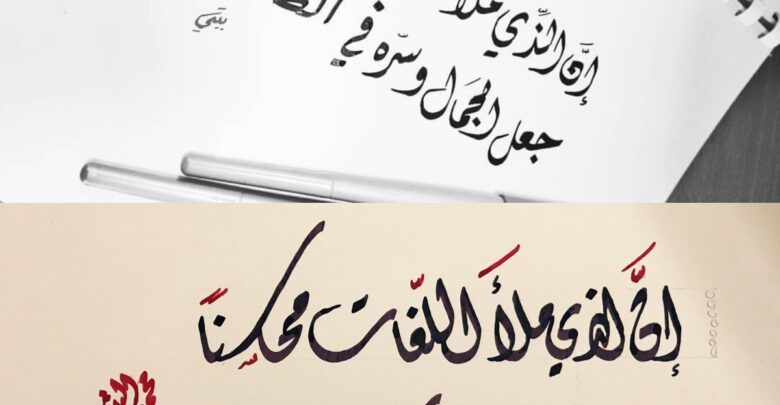 إنَّ الَّذي مَلأَ
جعل الجَمَال وسرّه في الضَّا
إنَّ الذي ملأَ اللّغات محاسِنًا